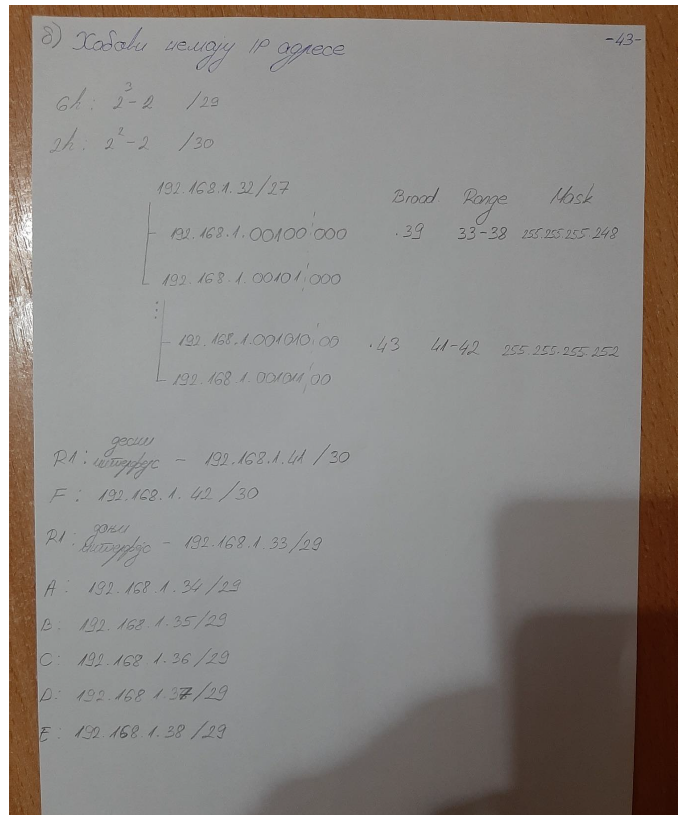 8) Хабови немају IP адресе
-43-
6h: 2³-2 /29
2h: 2²-2 /30
192.168.1.32/27
Broad Range Mask
192.168.1.00100¦000 .39 33-38 255.255.255.248
192.168.1.00101¦000
192.168.1.001010¦00 .43 41-42 255.255.255.252
192.168 1.001011¦00
R1: десни интерфејс - 192.168.1.41 /30
F: 192.168.1.42/30
R1: доњи интерфејс - 192.168.1.33/29
A: 192.168.1.34/29
B: 192.168.1.35/29
C: 192.168 1.36/29
D: 192.168 1.37/29
E: 192.168.1.38/29